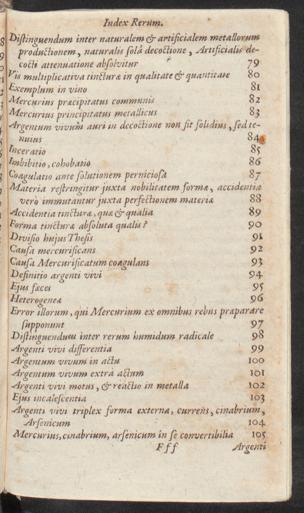 Index Rerum.
Distinguendum inter naturalem & artificialem metallorum
productionem, naturalis solâ decoctione, Artificialis de-
cocti attenuatione absolvitur 79
Vis multiplicativa tincturæ in qualitate & quantitate 80
Exemplum in vino 81
Mercurius præcipitatus communis 82
Mercurius principiatus metallicus 83
Argentum vivum auri in decoctione non fit solidius, sed te-
nuius 84
Inceratio 85
Imbibitio, cohobatio 86
Coagulatio ante solutionem perniciosa 87
Materia restringitur juxta nobilitatem formæ, accidentia
verò immutantur juxta perfectionem materiæ 88
Accidentia tincturæ, quæ & qualia 89
Forma tincturæ absoluta qualis? 90
Divisio hujus Thesis 91
Causa mercurificans 92
Causa Mercurificatum coagulans 93
Definitio argenti vivi 94
Ejus fæces 95
Heterogenea 96
Error illorum, qui Mercurium ex omnibus rebus præparare
supponunt 97
Distinguendum inter rerum humidum radicale 98
Argenti vivi differentia 99
Argentum vivum in actu 100
Argentum vivum extra actum 101
Argenti vivi motus, & reactio in metalla 102
Ejus incalescentia 103
Argenti vivi triplex forma externa, currens, cinabrium,
Arsenicum 104
Mercurius, cinabrium, arsenicum in se convertibilia 105
Fff Argenti